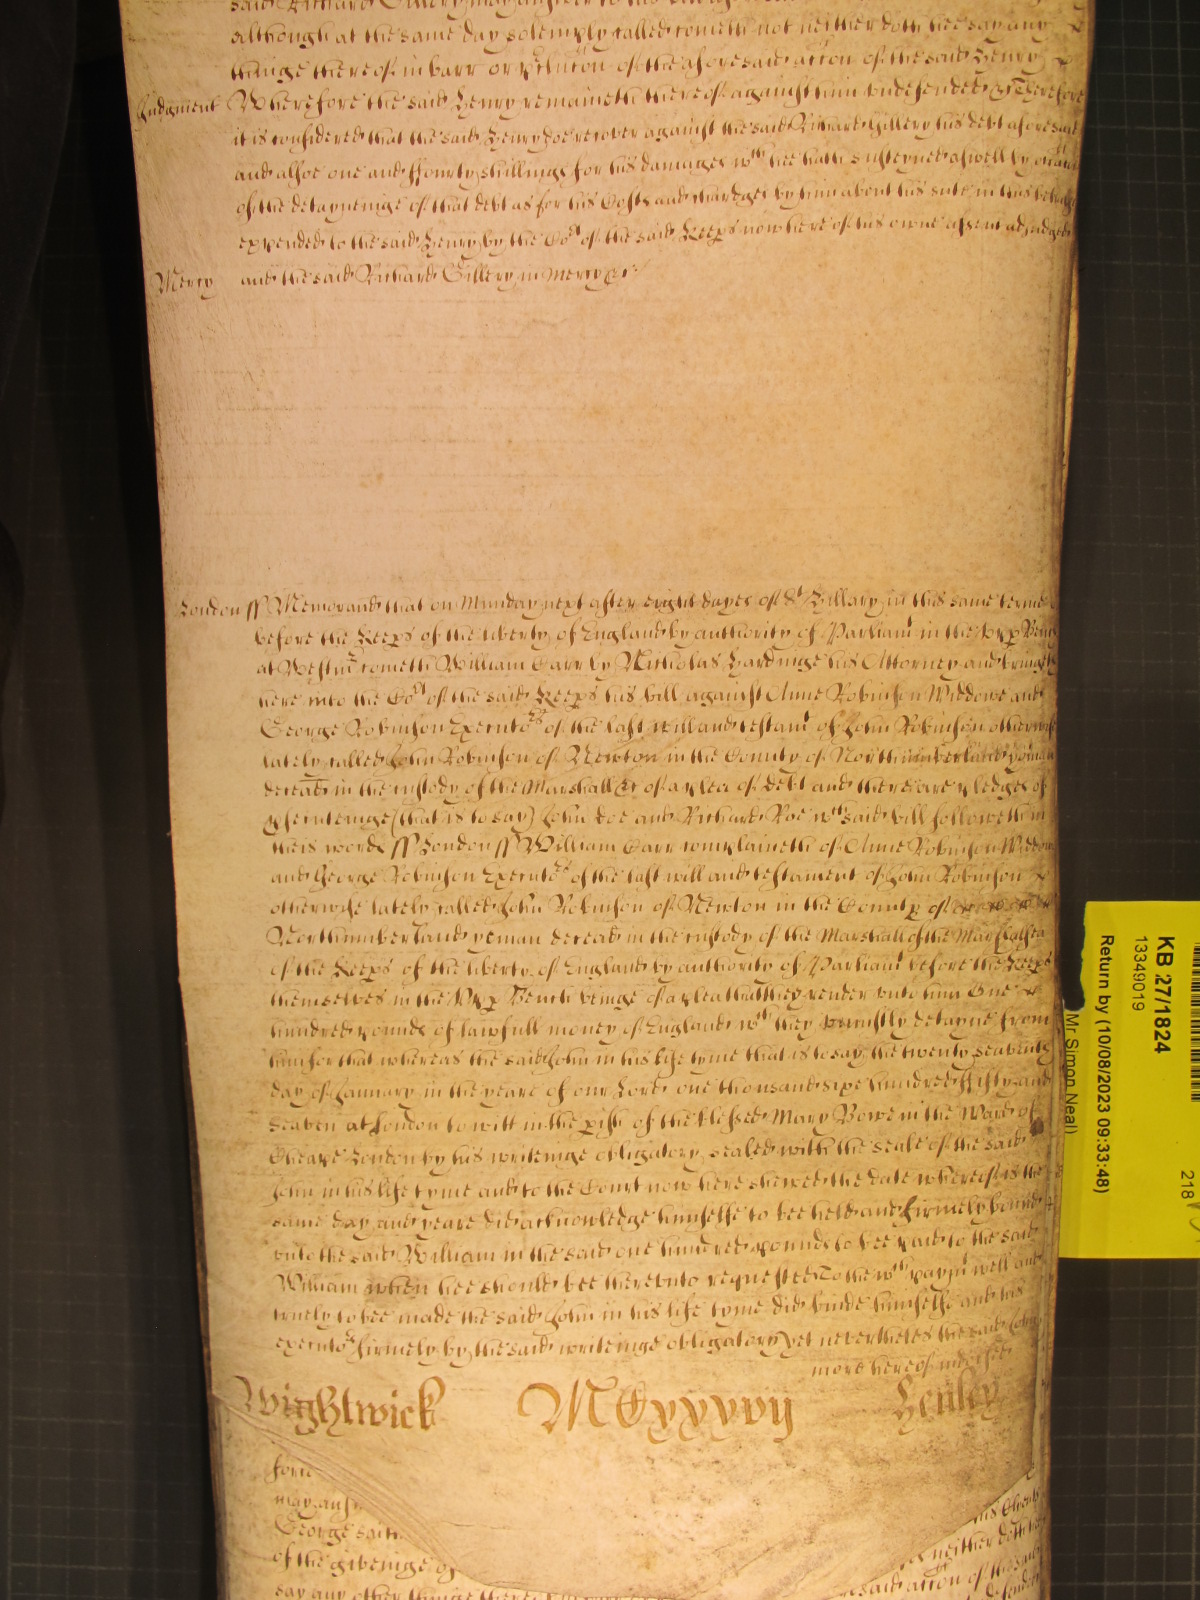 said Richard Gillery may answer to his
although at the same day solemply called cometh not neither doth hee say any
thinge thereof in barr or of the aforesaid accon of the said Henry
Judgment Wherefore the said Henry remaineth thereof against him undefended &c Therefore
it is considered that the said Henry doe recover against the said Richard Gillery his debt aforesaid
and alsoe one and ffourty shillings for his damages wch hee hath susteyned aswell by occasion
of the detayneinge of that debt as for his Costs and chardges by him about his sute in this behalf
expended to the said Henry by the Cort of the said Keeps now here of his owne assent adjudged
Mercy and the said Richard Gillery in mercy &c
London ss Memorand that on Munday next after eight dayes of St Hillary in this same terme
before the Keeps of the liberty of England by authority of Parliamt in the Upp Bench
at Westmr cometh William Carr by Nicholas Hardinge his Attorney and bringeth
here into the Cort of the said Keeps his bill against Anne Robinson Widdowe and
George Robinson Executors of the last will and testamt of John Robinson otherwise
lately called John Robinson of Newton in the County of Northumberland yeoman
deceased in the custody of the Marshall &c of a plea of debt and there are pledges of
prosecuteinge (that is to say) John Doe and Richard Roe wch said bill followeth in
theis words ss London ss William Carr complaineth of Anne Robinson Widdow
and George Robinson Executors of the last will and testament of John Robinson
otherwise lately called John Robinson of Newton in the County of
Northumberland yeman deceased in the custody of the Marshall of the Marshalsea
of the Keeps of the liberty of England by authority of Parliamt before the Keeps
themselves in the Upp Bench beinge of a plea that they render unto him One
hundred pounds of lawfull money of England wch they uniustly detayne from
him for that whereas the said John in his life tyme that is to say the twenty seaventh
day of January in the yeare of our Lord one thousand sixe hundred ffifty and
seaven at London to witt in the pish of the blessed Mary Bowe in the Ward of
Cheape London by his writeinge obligatory sealed with the seale of the said
John in his life tyme and to the Court now here shewed the date whereof is the
same day and yeare did acknowledge himselfe to bee held and firmely bound
unto the said William in the said one hundred pounds to bee paid to the said
William when hee should bee thereunto requested To the wch paymt well and
truely to bee made the said John in his life tyme did binde himselfe and his
executors firmely by the said writeinge obligatory yet nevertheles the said John
more hereof indorsed
Wightwick MCxxxvij Henley
form
may
George saith
of the giveinge of
say any other thinge there
his
neither doth
accon of the said
KB 27/1824
13349019
Return by (10/08/2023 09:33:48)
Mr. Simon Neal)
218